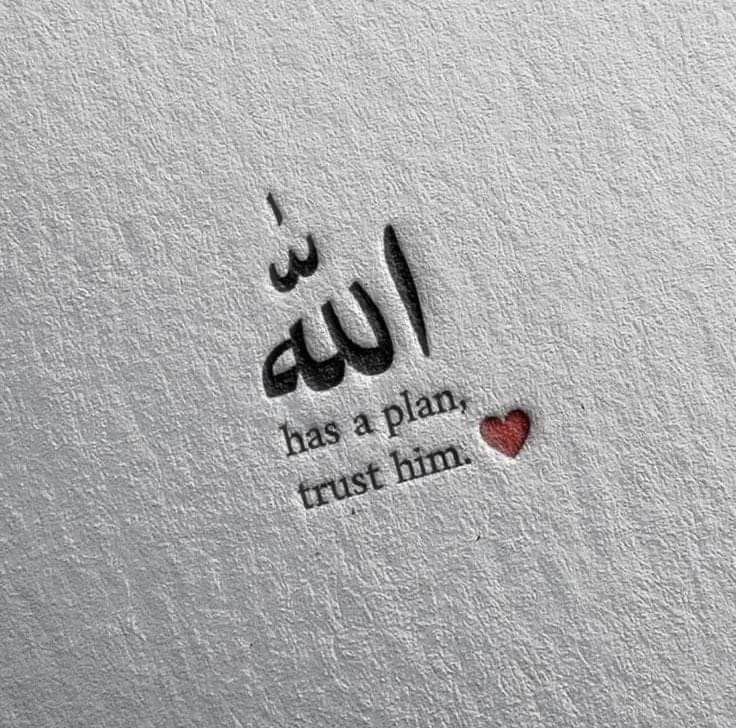 الله
has a plan,
trust him. ❤